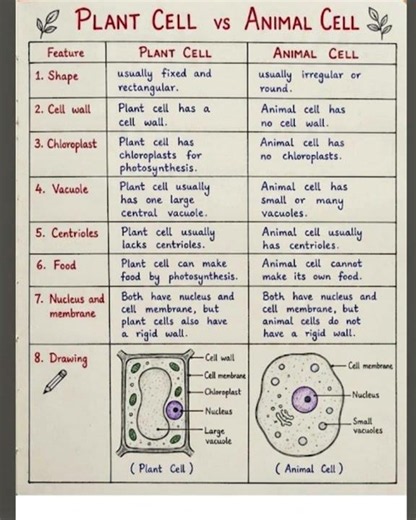 PLANT CELL vs ANIMAL CELL
Feature
PLANT CELL
ANIMAL CELL
1. Shape
usually fixed and
rectangular.
usually irregular or
round.
2. Cell wall
Plant cell has a
cell wall.
Animal cell has
no cell wall.
3. Chloroplast
Plant cell has
chloroplasts for
photosynthesis.
Animal cell has
no chloroplasts.
4. Vacuole
Plant cell usually
has one large
central vacuole.
Animal cell has
small or many
vacuoles.
5. Centrioles
Plant cell usually
lacks centrioles.
Animal cell usually
has centrioles.
6. Food
Plant cell can make
food by photosynthesis.
Animal cell cannot
make its own food.
7. Nucleus and
membrane
Both have nucleus and
cell membrane, but
plant cells also have
a rigid wall.
Both have nucleus and
cell membrane, but
animal cells do not
have a rigid wall.
8. Drawing
Cell wall
Cell membrane
Chloroplast
Nucleus
Large
vacuole
(Plant Cell)
Cell membrane
Nucleus
Small
vacuoles
(Animal Cell)